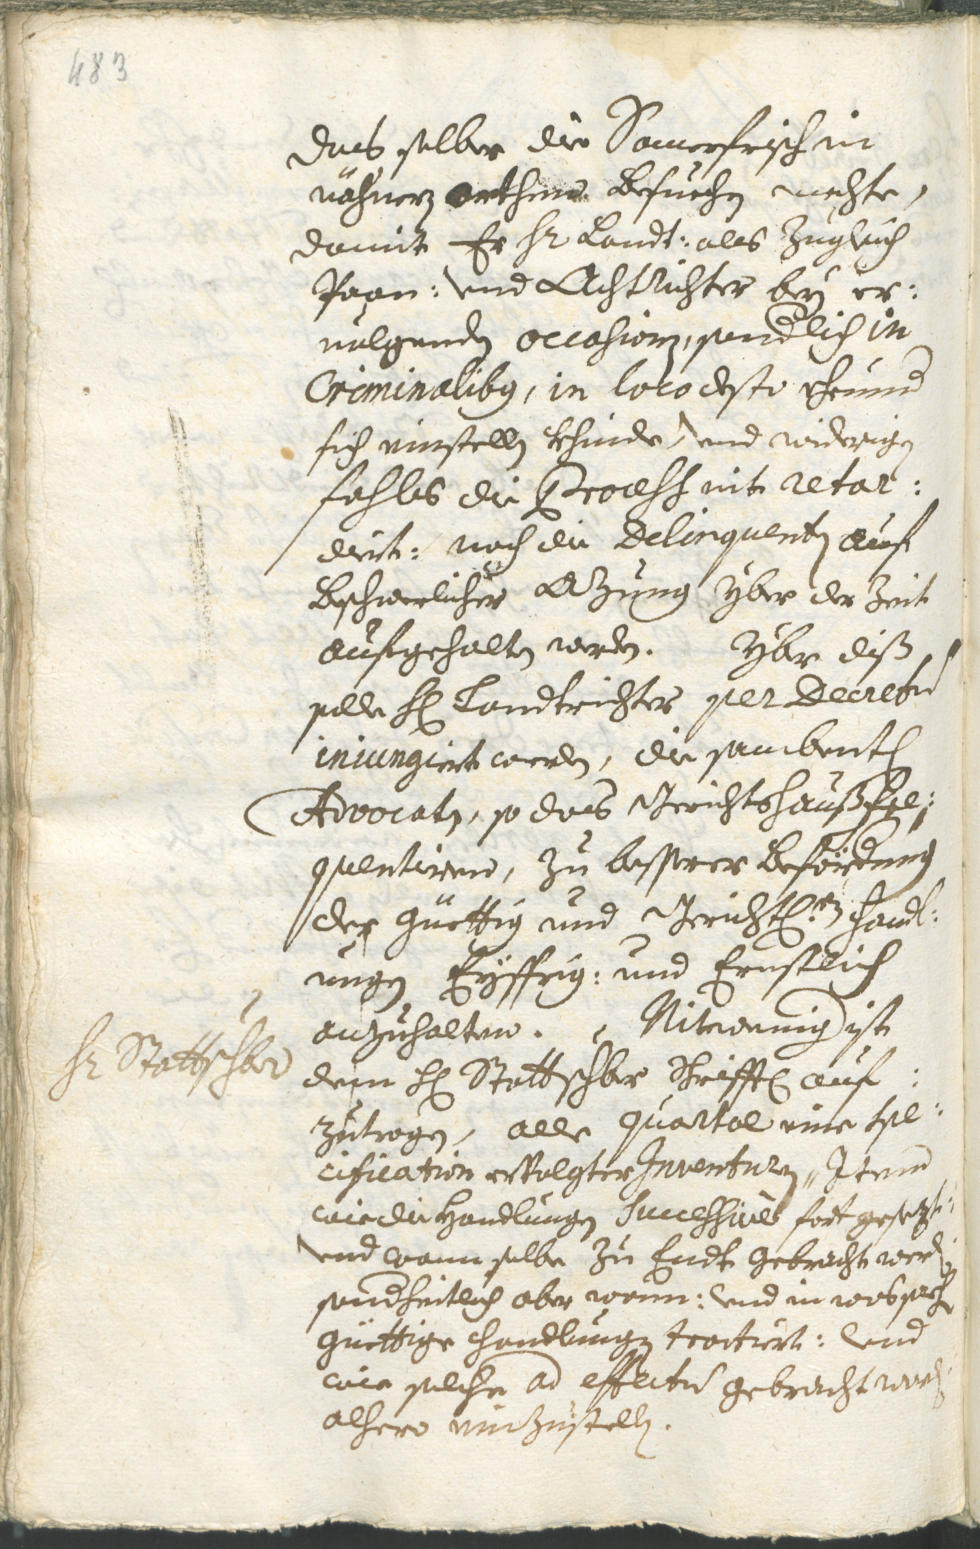 483
das selber die Somerfrisch in
nähnern orthen besuechen mechte,
damit Er Hr Landt: als Zugleich
Pann: vnd Achtrichter bey er:
uolgenden occasionen, sonderlich in
Criminalibus, in loco desto
sich einstellen khinde, vnd widerigen
fahls die Process nit retar:
diert: noch die Delinquenten auf
beschwerlicher Azung yber der Zeit
aufgehalten werden. Yber diß
solle H. Landtrichter per Decretum
iniungiert werden, die sambentl.
Advocaten, so das Gerichtshauß fre:
quentieren, zu besserer beförderung
der güettig und Gerichtl:en handl:
ungen Eyffrig: und Ernstlich
anzuhalten. Nitweniger ist
Hr Stattschber
dem H. Stattschber auf:
zutragen, alle quartal eine spe:
cification ervolgter Inventuren, Item
wie die Handlungen Successive fort gesezt:
vnd wann selbe zu Endt gebracht werden
sonderheitlich aber wann: vnd in was sachen
güettige handlungen tractiert: vnd
wie solche ad effectum gebracht worden
alhero einzustellen.